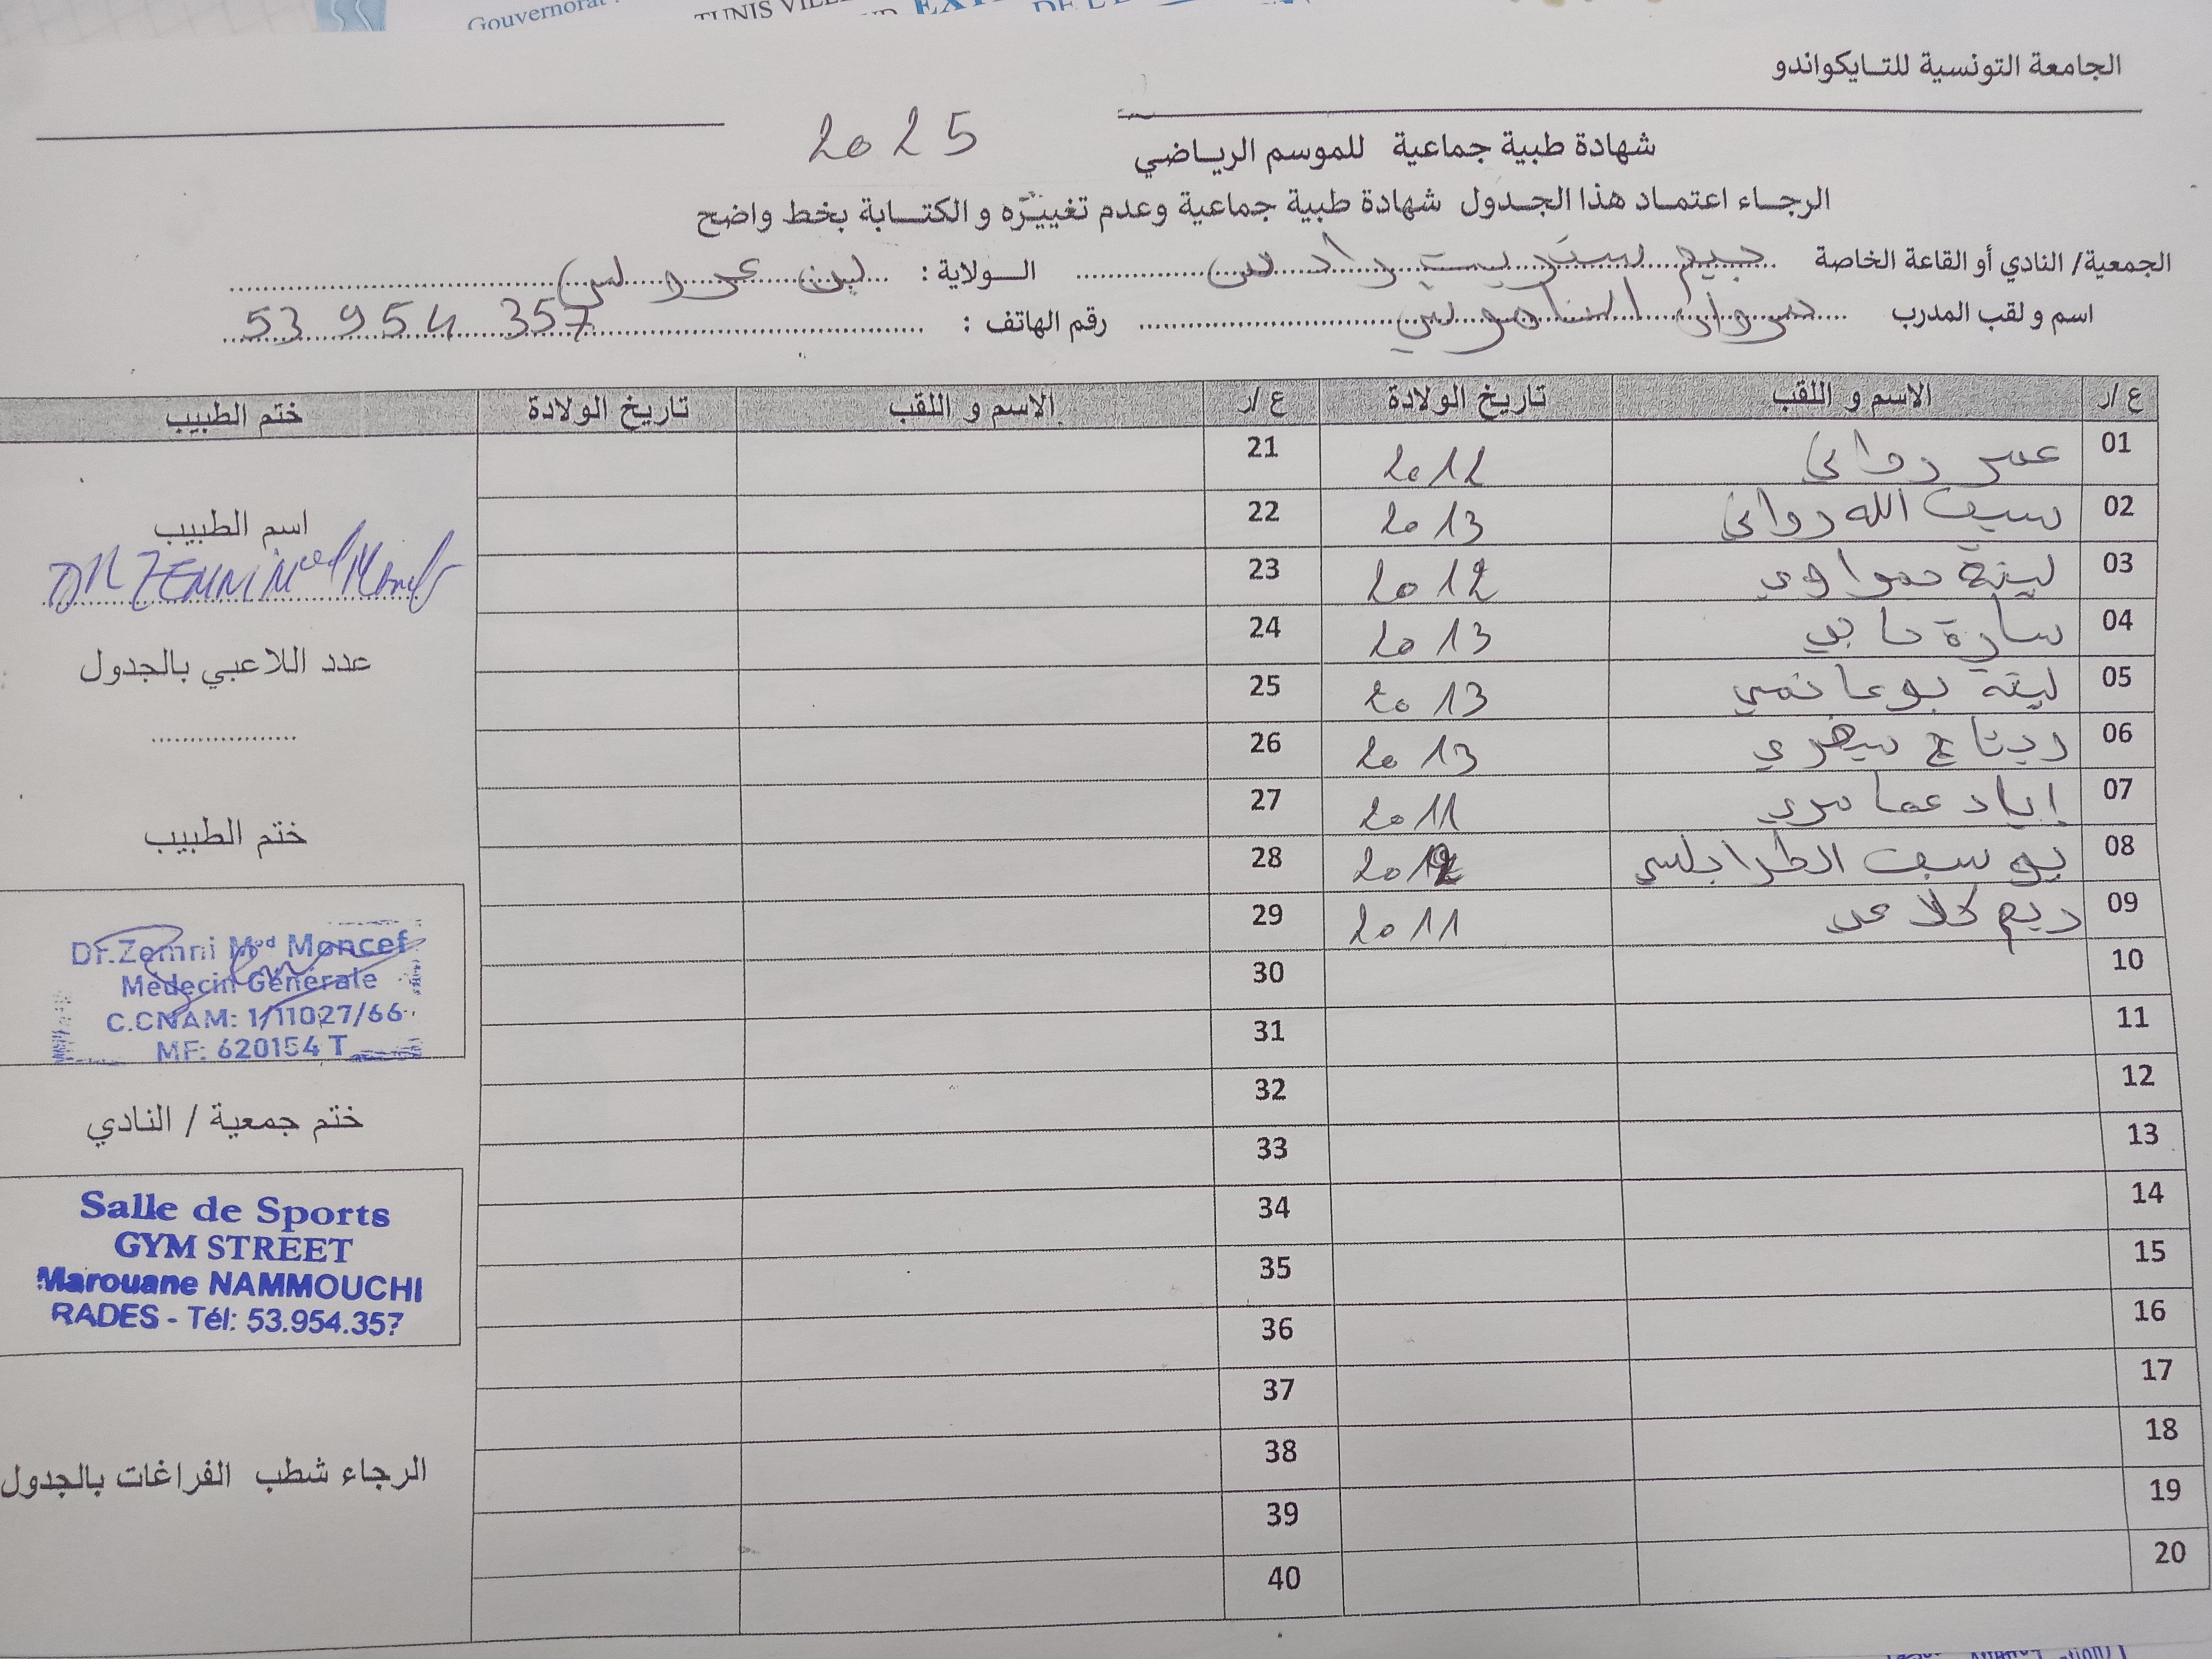 Gouvernorat
TUNIS VILLE
الجامعة التونسية للتايكواندو
شهادة طبية جماعية للموسم الرياضي 2025
الرجاء اعتماد هذا الجدول شهادة طبية جماعية وعدم تغييره و الكتابة بخط واضح
الجمعية/ النادي أو القاعة الخاصة جيم ستريت رادس الولاية : بن عروس
اسم و لقب المدرب مروان الناموشي رقم الهاتف : 53 954 357
ع/ر الاسم و اللقب تاريخ الولادة ع/ر الاسم و اللقب تاريخ الولادة ختم الطبيب
01 عمر رواني 2012 21
02 سيف الله رواني 2013 22
03 لينة 2012 23
04 سارة 2013 24
05 لينة بوغانمي 2013 25
06 2013 26
07 إياد عمامري 2011 27
08 يوسف الطرابلسي 2012 28
09 ريم كلاعي 2011 29
10 30
11 31
12 32
13 33
14 34
15 35
16 36
17 37
18 38
19 39
20 40
اسم الطبيب
DR ZEMNI Med Moncef
عدد اللاعبي بالجدول
ختم الطبيب
Dr.Zemni Med Moncef
Médecin Générale
C.CNAM: 1/11027/66
MF: 620154 T
ختم جمعية / النادي
Salle de Sports
GYM STREET
Marouane NAMMOUCHI
RADES - Tél: 53.954.357
الرجاء شطب الفراغات بالجدول